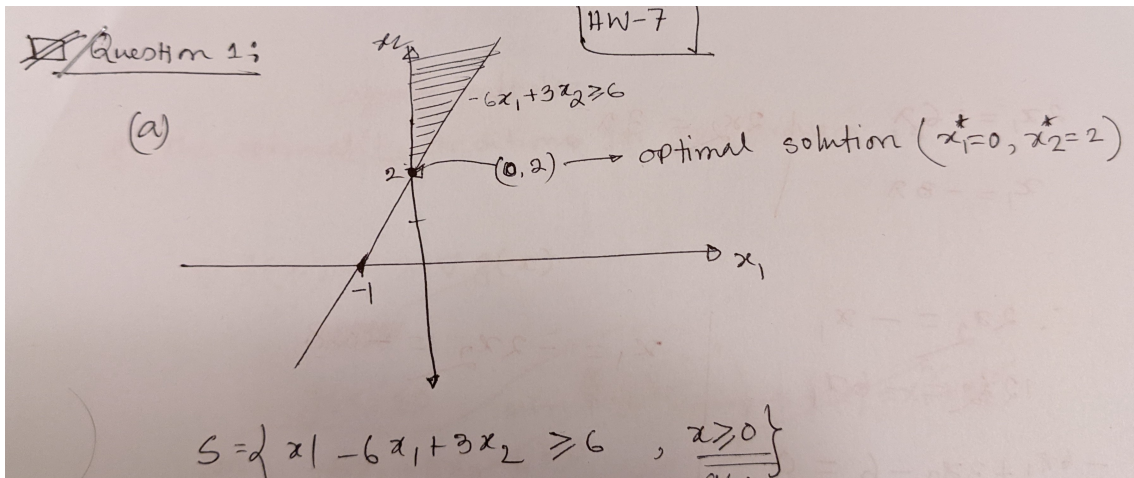 HW-7
Question 1:
(a)
-6x₁+3x₂≥6
2
(0,2) → optimal solution (x₁*=0, x₂*=2)
x₁
-1
S={x| -6x₁+3x₂ ≥6 , x≥0}